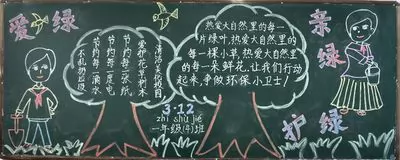 爱绿
清洁美化校园
爱护花草树木
节约每一张纸
节约每一度电
节约每一滴水
不乱扔垃圾
热爱大自然里的每一
片绿叶,热爱大自然里的
每一棵小草,热爱大自然里
的每一朵鲜花,让我们行动
起来,争做环保小卫士!
亲绿
护绿
3·12
zhí shù jié
一年级(4)班